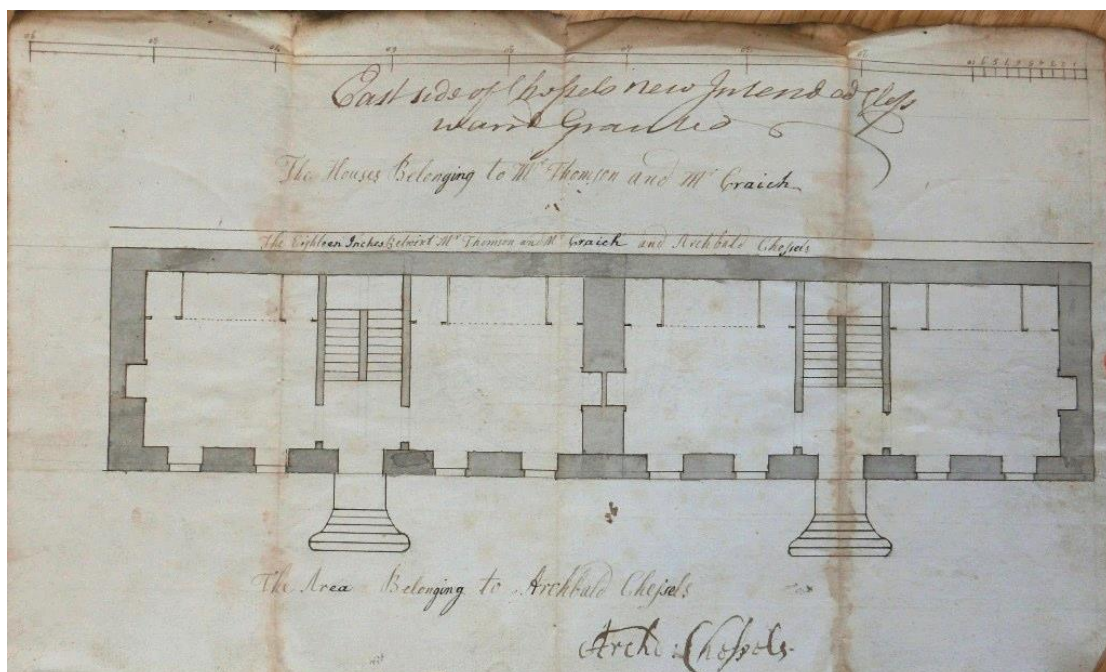 East side of Chessels new Intended Closs
warrd Granted
The Houses Belonging to Mr Thomson and Mr Graich
The Eighteen Inches Betwixt Mr Thomson and Mr Graich and Archbald Chessels
The Area Belonging to Archbald Chessels
Archd: Chessels